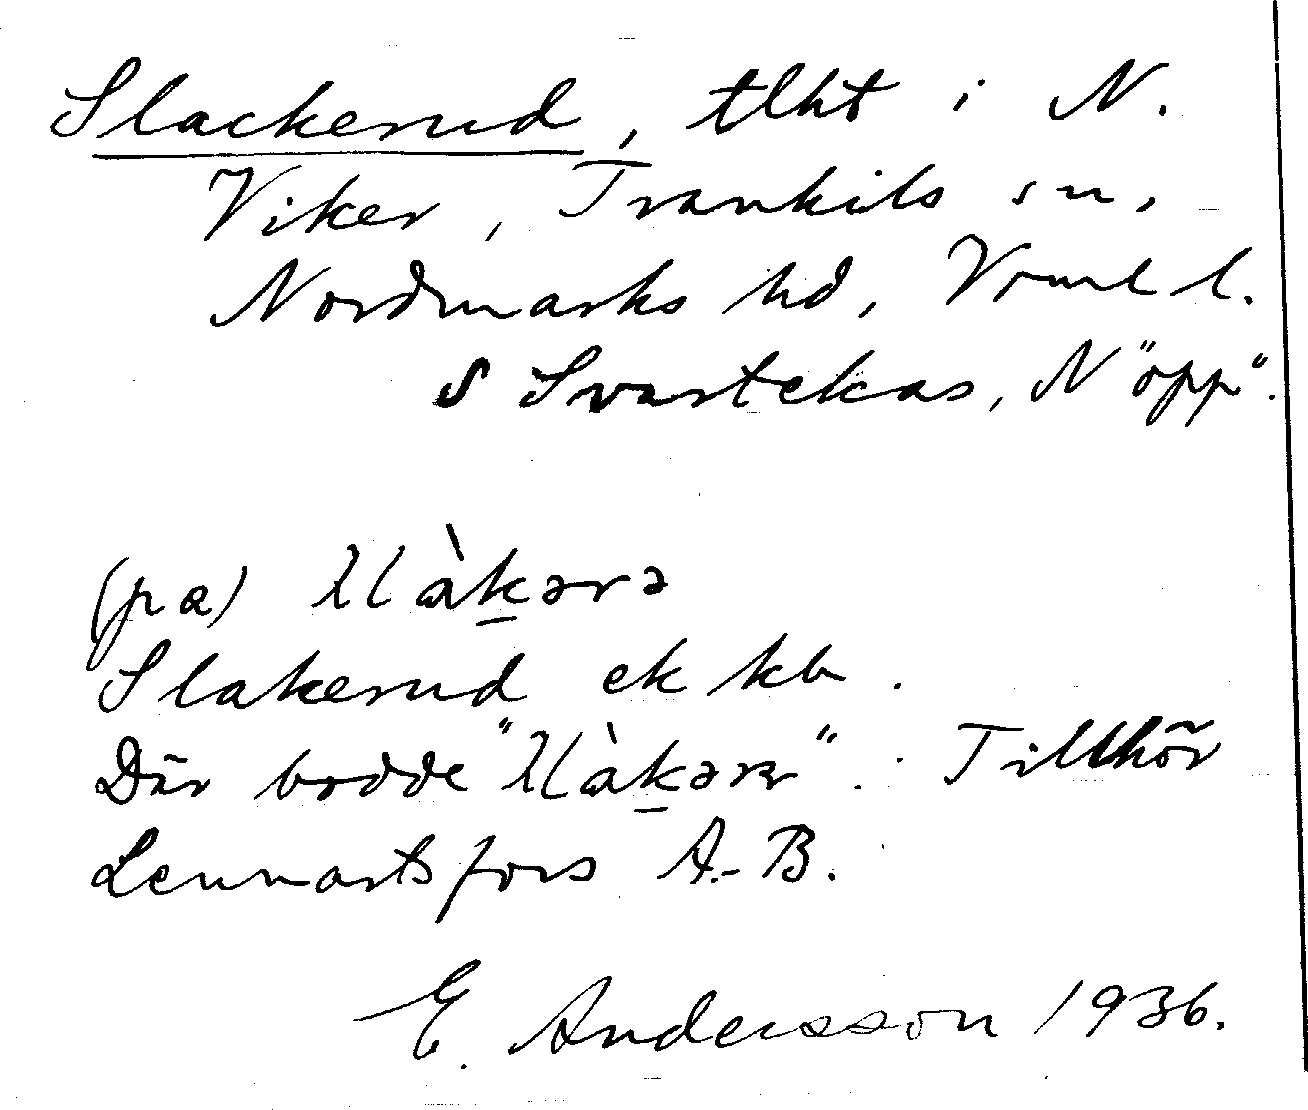 Slackerud, tlht i N.
Viker, Trankils sn,
Nordmarks hd, Vrml l.
S Svartekas, N "öpp".
(pα) λlὰk̲ərə
Slakerud ek kb.
Där bodde "λlὰk̲ərn". Tillhör
Lennartsfors A.-B.
E. Andersson 1936.